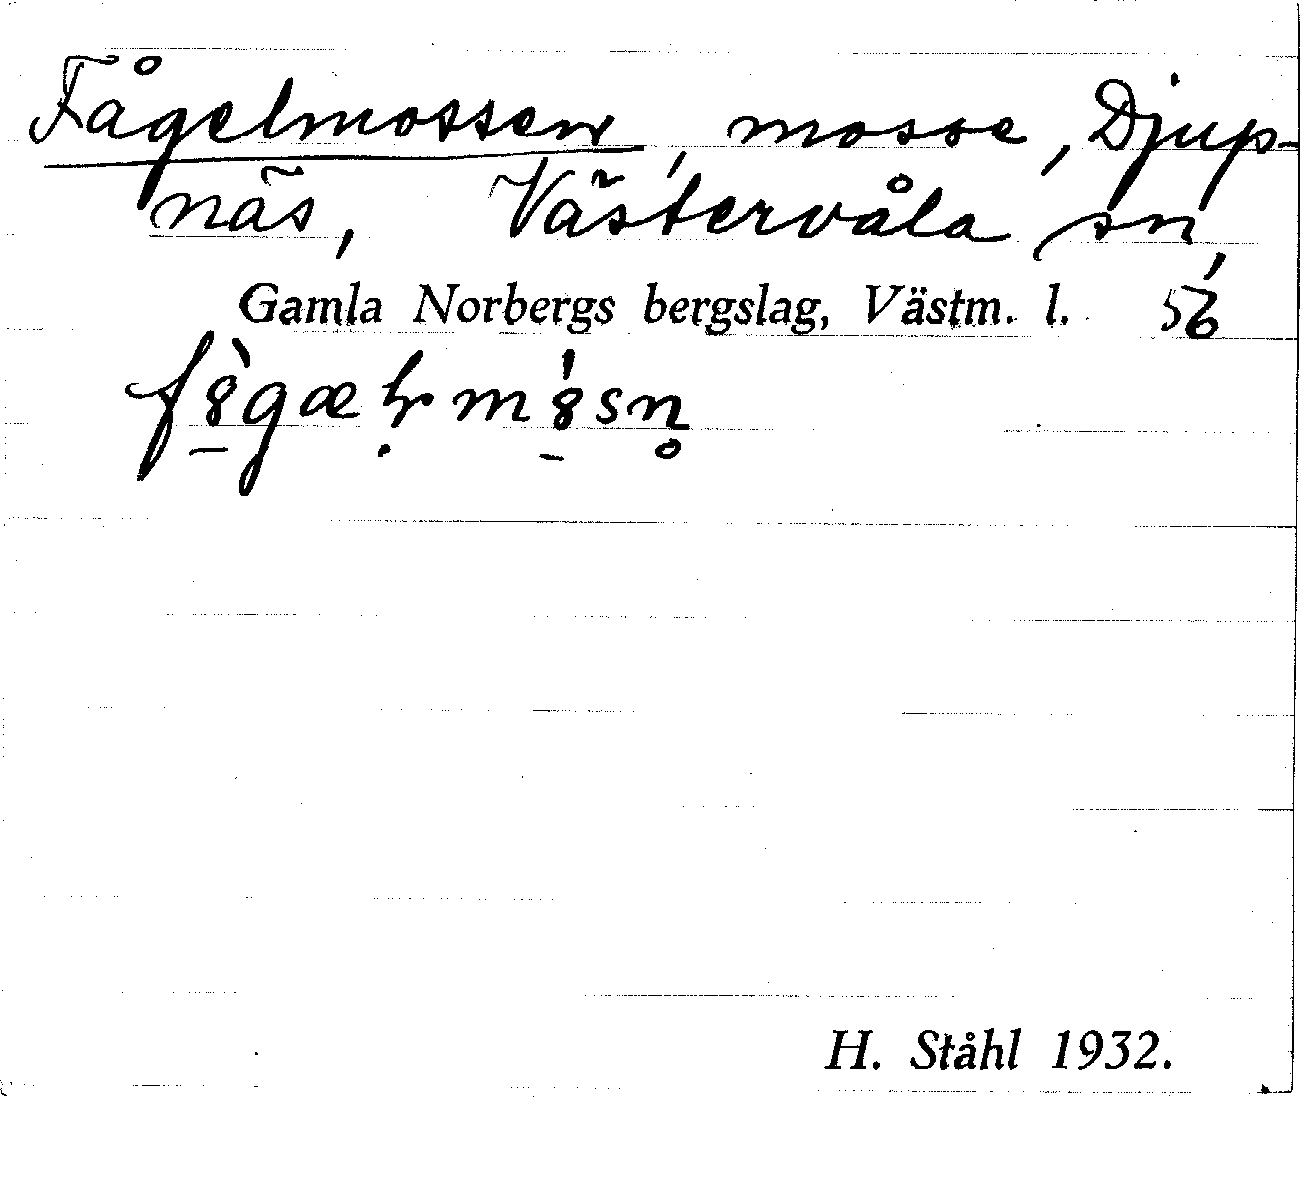 Fågelmossen, mosse, Djup-
näs, Västervåla sn,
Gamla Norbergs bergslag, Västm. l. 56
H. Ståhl 1932.